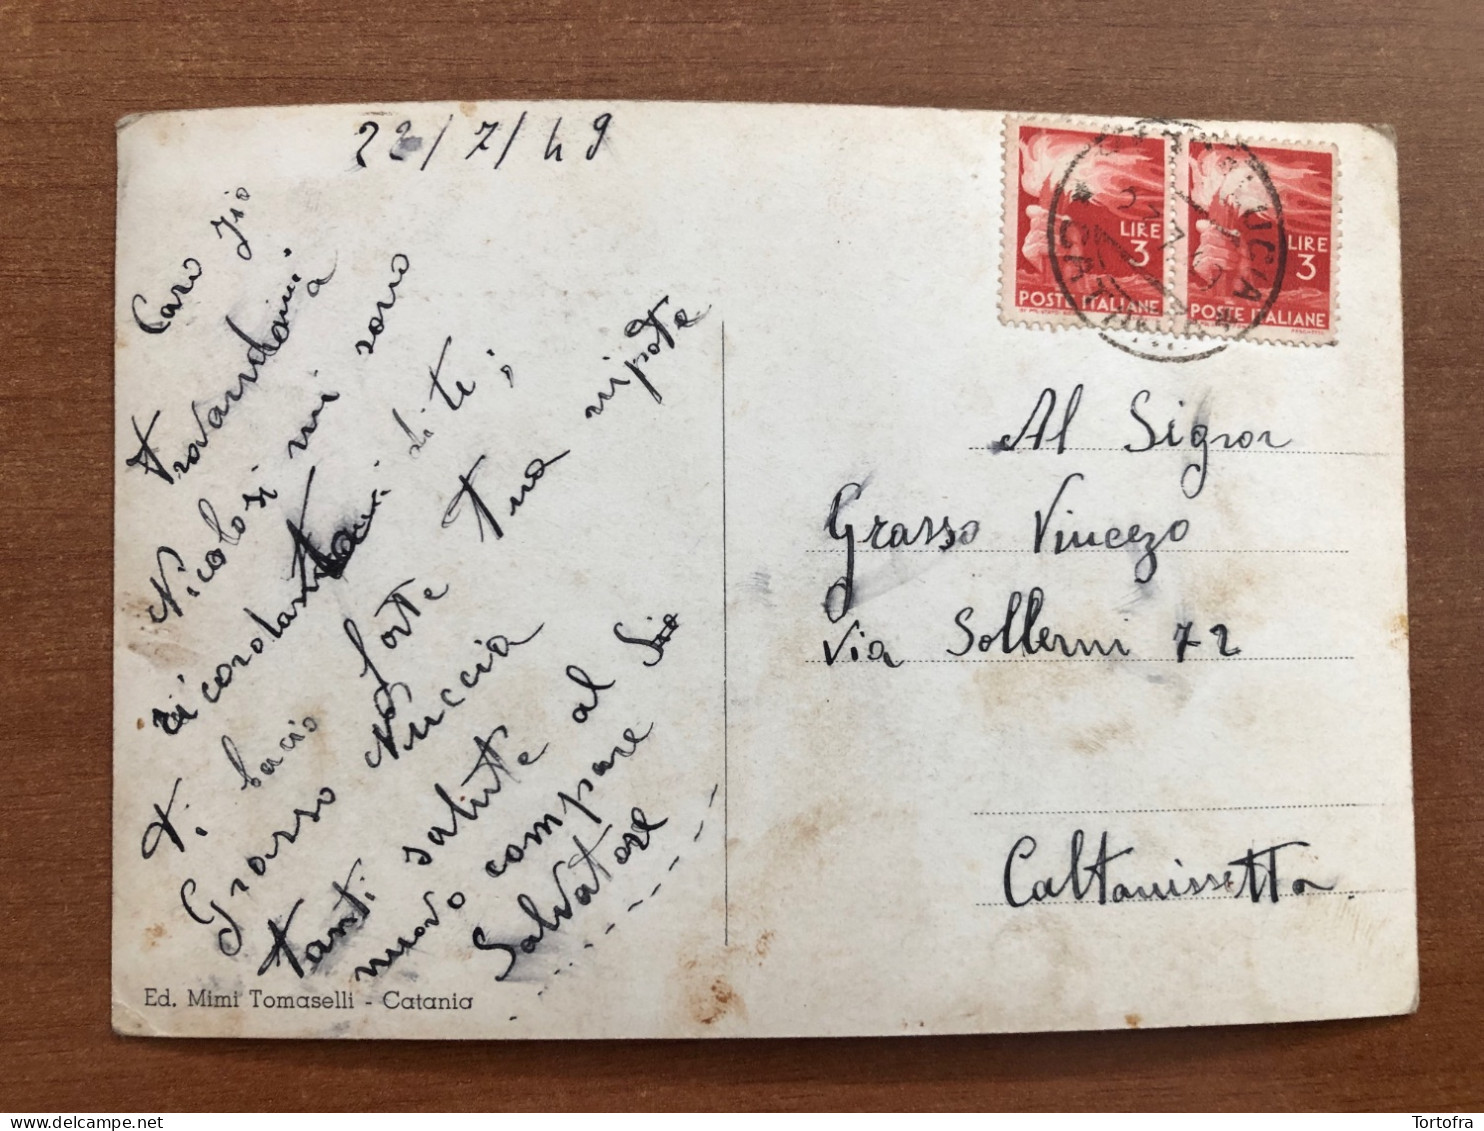 22/7/49
Caro zio
trovandomi a
Nicolosi mi sono
ricordata di te;
Ti bacio forte tua nipote
Grasso Nuccia
tanti salute al Sio
nuovo compare
Salvatore
Ed. Mimi Tomaselli - Catania
LIRE
3
POSTE ITALIANE
LIRE
3
POSTE ITALIANE
Al Signor
Grasso Vincezo
Via Sollemi 72
Caltanissetta
Tortofra